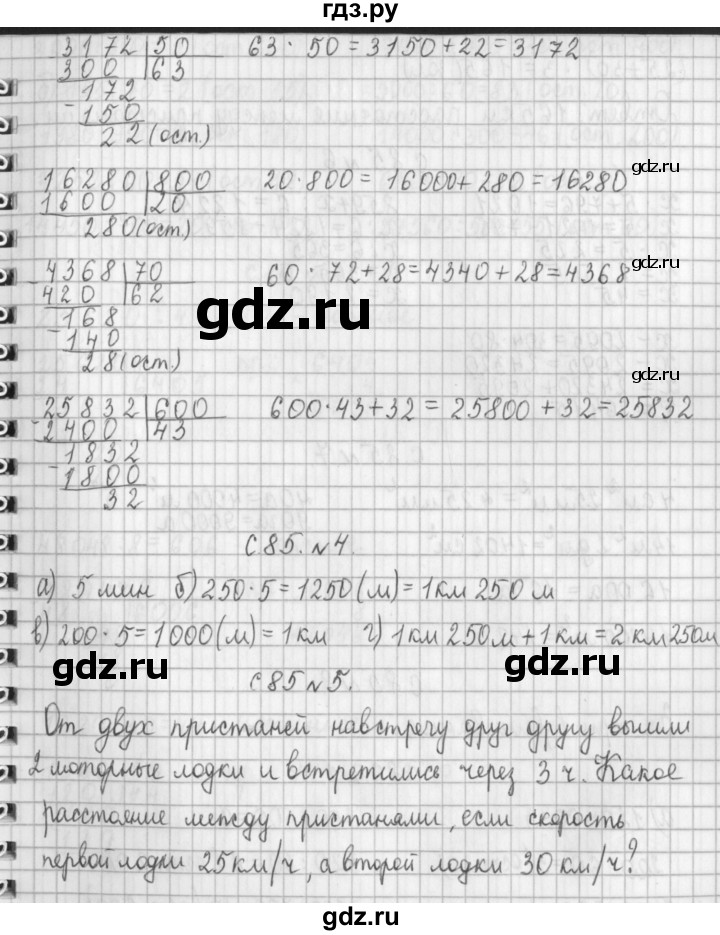 гдз.ру
3172 50 63 · 50 = 3150 + 22 = 3172
300 63
172
- 150
22 (ост.)
gdz.ru
16280 800 20 · 800 = 16000 + 280 = 16280
1600 20
280 (ост.)
gdz.ru
4368 70 60 · 72 + 28 = 4340 + 28 = 4368
- 420 62
168
- 140
28 (ост.)
gdz.ru
gdz.ru
25832 600 600 · 43 + 32 = 25800 + 32 = 25832
- 2400 43
1832
- 1800
32
С 85. № 4.
а) 5 мин б) 250 · 5 = 1250 (м) = 1 км 250 м
в) 200 · 5 = 1000 (м) = 1 км г) 1 км 250 м + 1 км = 2 км 250 м
gdz.ru gdz.ru
С 85 № 5.
От двух пристаней навстречу друг другу вышли
2 моторные лодки и встретились через 3 ч. Какое
расстояние между пристанями, если скорость
первой лодки 25 км/ч, а второй лодки 30 км/ч?
gdz.ru